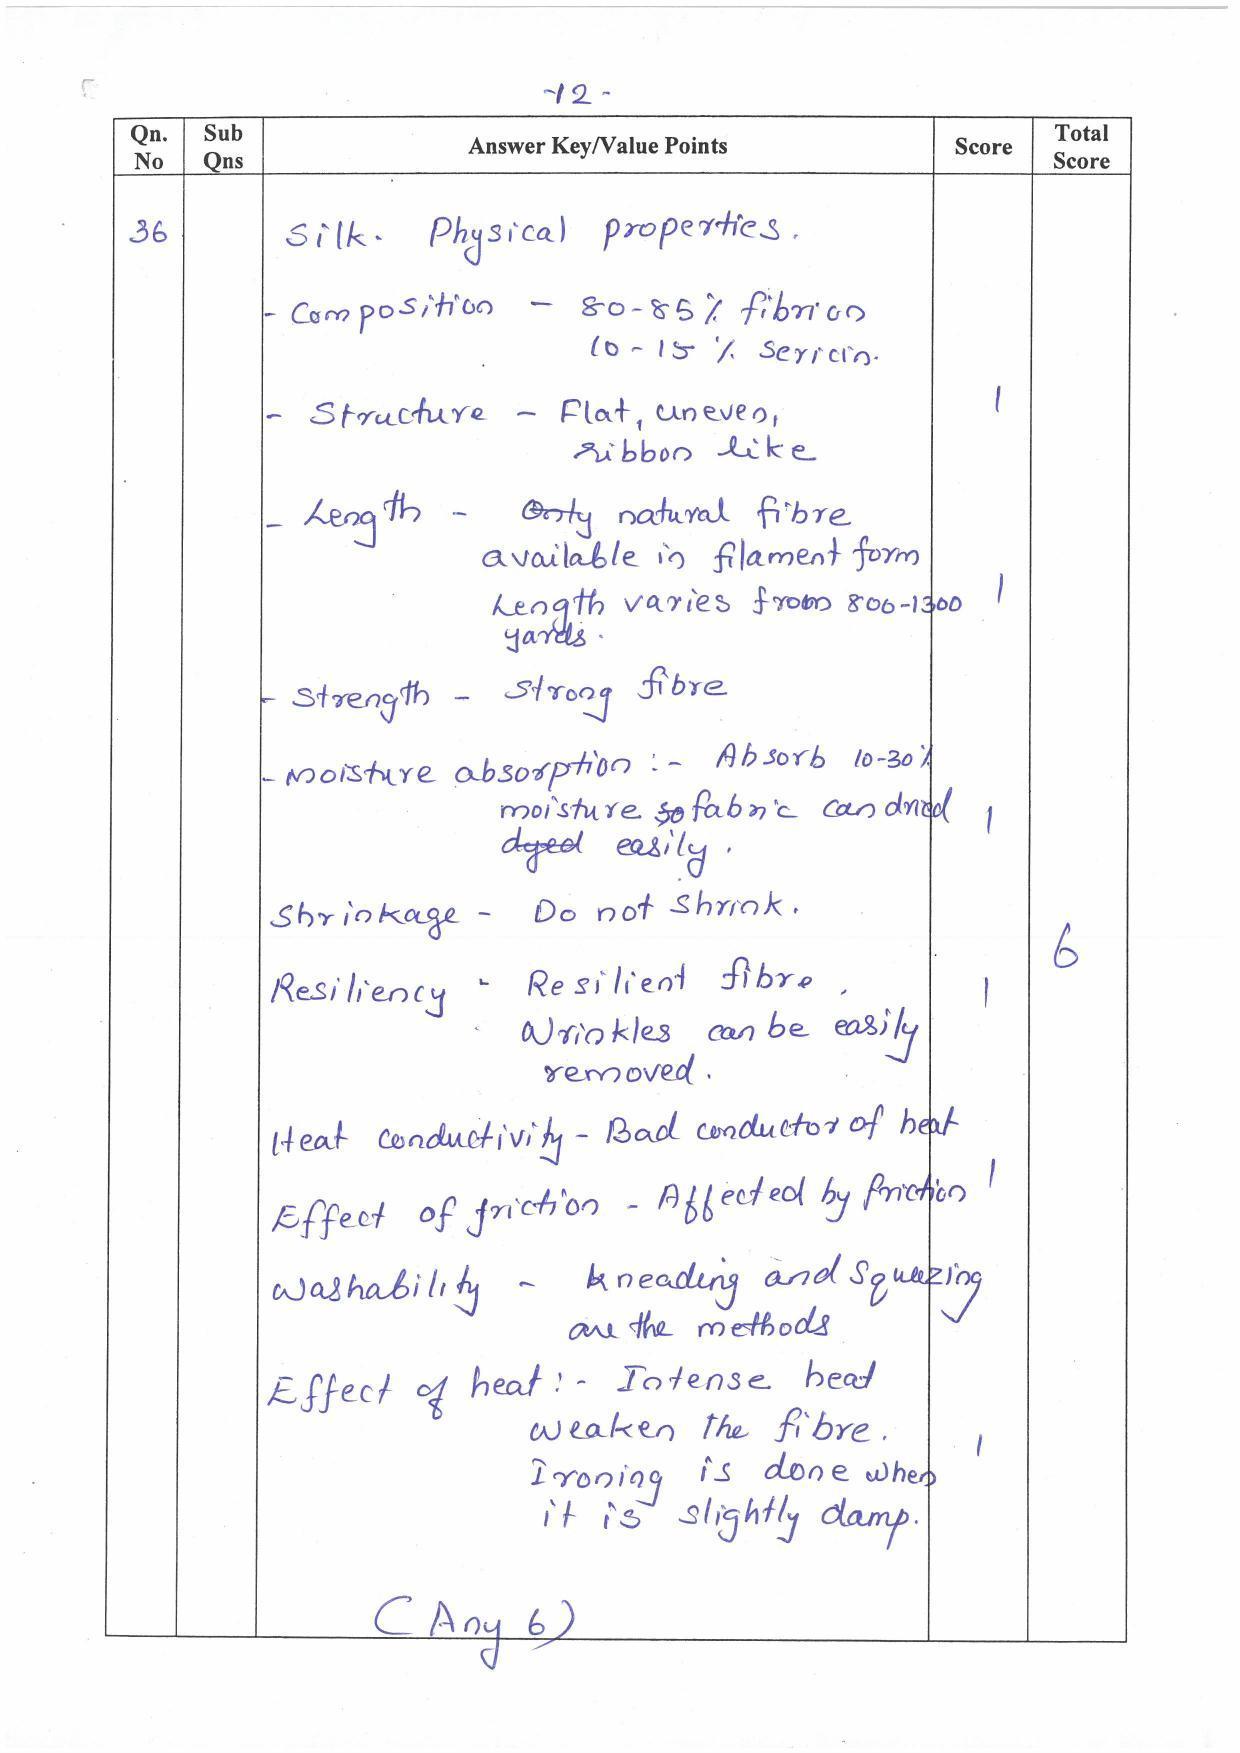 -12-
Qn. No
Sub Qns
Answer Key/Value Points
Score
Total Score
36
Silk. Physical properties.
- Composition - 80-85% fibrion
10-15 % Sericin.
- Structure - Flat, uneven, 1
ribbon like
- Length - Only natural fibre
available in filament form
Length varies from 800-1300 1
yards.
- Strength - Strong fibre
- Moisture absorption :- Absorb 10-30%
moisture so fabric can dried 1
dyed easily.
Shrinkage - Do not shrink.
6
Resiliency - Resilient fibre, 1
Wrinkles can be easily
removed.
Heat conductivity - Bad conductor of heat
Effect of friction - Affected by friction 1
Washability - kneading and squeezing
are the methods
Effect of heat :- Intense heat
weaken the fibre. 1
Ironing is done when
it is slightly damp.
(Any 6)